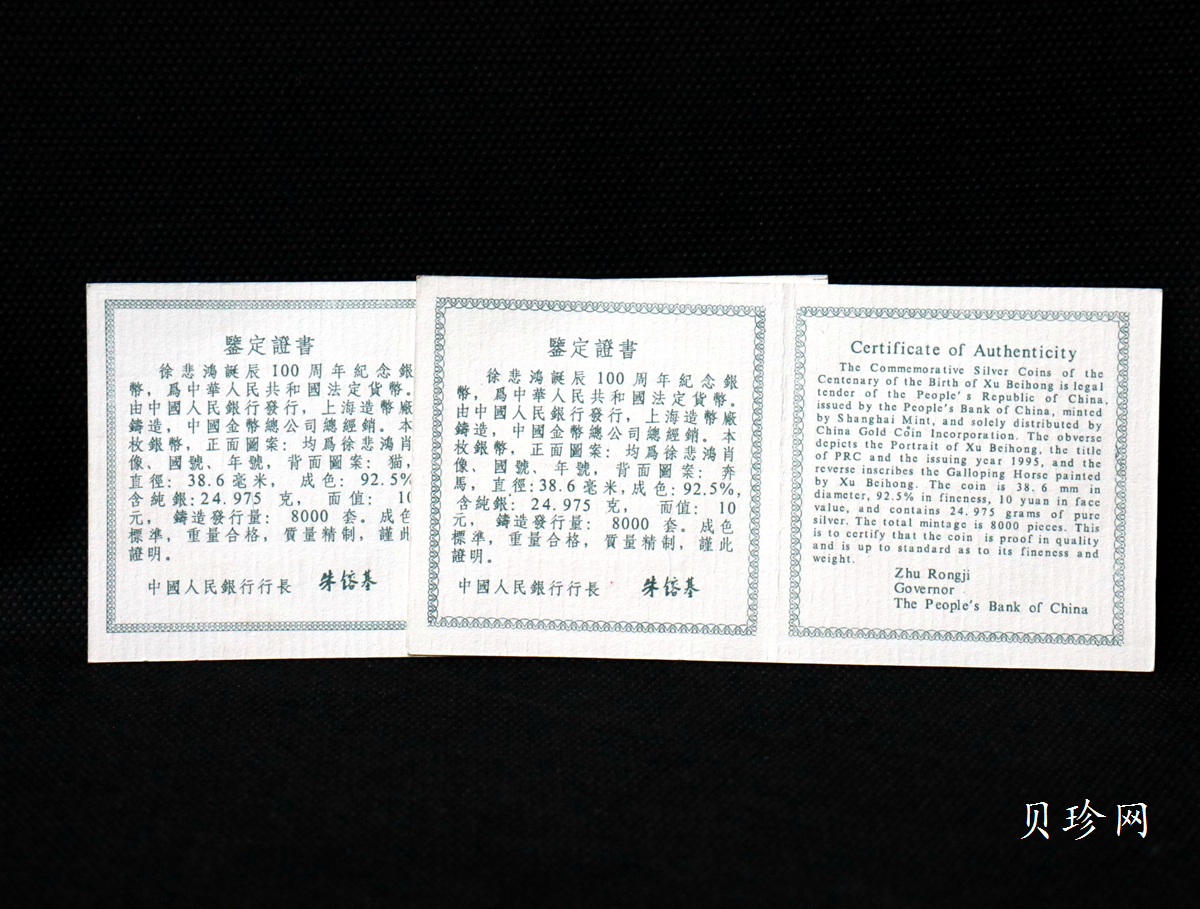 鑒定證書
徐悲鴻誕辰100周年紀念銀
幣，爲中華人民共和國法定貨幣。
由中國人民銀行發行，上海造幣廠
鑄造，中國金幣總公司總經銷。本
枚銀幣，正面圖案：均爲徐悲鴻肖
像、國號、年號，背面圖案：猫，
直徑：38.6毫米，成色：92.5%
含純銀：24.975 克，面值：10
元，鑄造發行量：8000 套。成色
標準，重量合格，質量精制，謹此
證明。
中國人民銀行行長 朱鎔基
鑒定證書
徐悲鴻誕辰100周年紀念銀
幣，爲中華人民共和國法定貨幣。
由中國人民銀行發行，上海造幣廠
鑄造，中國金幣總公司總經銷。本
枚銀幣，正面圖案：均爲徐悲鴻肖
像、國號、年號，背面圖案：奔
馬，直徑：38.6毫米，成色：92.5%，
含純銀：24.975 克，面值：10
元，鑄造發行量：8000 套。成色
標準，重量合格，質量精制，謹此
證明。
中國人民銀行行長 朱鎔基
Certificate of Authenticity
The Commemorative Silver Coins of the
Centenary of the Birth of Xu Beihong is legal
tender of the People's Republic of China,
issued by the People's Bank of China, minted
by Shanghai Mint, and solely distributed by
China Gold Coin Incorporation. The obverse
depicts the Portrait of Xu Beihong, the title
of PRC and the issuing year 1995, and the
reverse inscribes the Galloping Horse painted
by Xu Beihong. The coin is 38.6 mm in
diameter, 92.5% in fineness, 10 yuan in face
value, and contains 24.975 grams of pure
silver. The total mintage is 8000 pieces. This
is to certify that the coin is proof in quality
and is up to standard as to its fineness and
weight.
Zhu Rongji
Governor
The People's Bank of China
贝珍网